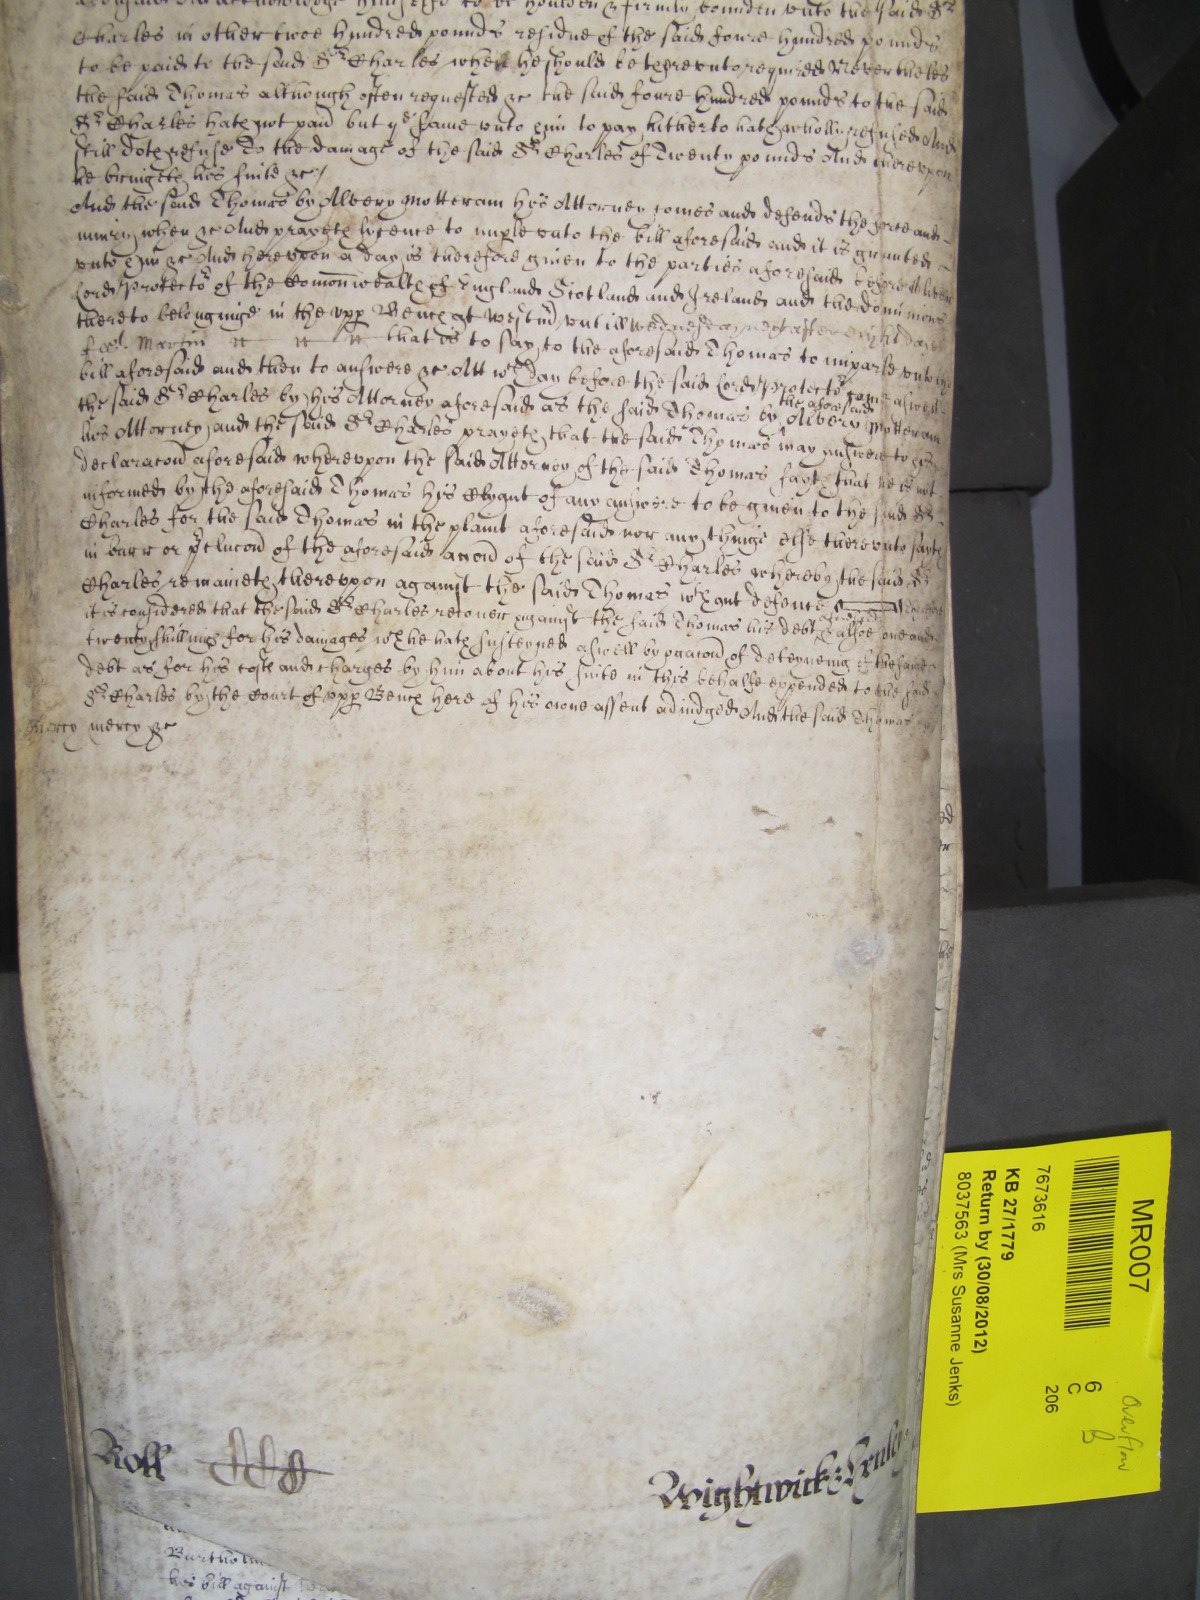 acknowledge himselfe to be houlden & firmly bounden unto the said Sr
Charles in other twoe hundred pounds residue of the said foure hundred pounds
to be paid to the said Sr Charles when he should be thereunto required Neverthelés
the said Thomas although often requested &c the said foure hundred pounds to the said
Sr Charles hath not paid but ye same unto him to pay hitherto hath wholly refused And
still doth refuse To the damage of the said Sr Charles of Twenty pounds And thereupon
he bringeth his suite &c
And the said Thomas by Alvery Motteram his Attorney comes and defends the force and
iniury when &c And prayeth lycence to imple unto the bill aforesaid and it is graunted
unto him &c And hereupon a day is therefore given to the parties aforesaid before Oliver
Lord Protector of the Comonwealth of England Scotland and Ireland and the dominions
thereto belonginge in the upp Bench at Westm untill wednesday next after eight dayes
of Martin that is to say to the aforesaid Thomas to imparle unto the
bill aforesaid and then to answere &c Att wch day before the said Lord Protector came aswell
the said Sr Charles by his Attorney aforesaid as the said Thomas by the aforesaid Alvery Motteram
his Attorney and the said Sr Charles prayeth that the said Thomas may answere to his
declaracon aforesaid whereupon the said Attorney of the said Thomas sayth that he is not
informed by the aforesaid Thomas his Clyant of any answere to be given to the said Sr
Charles for the said Thomas in the plaint aforesaid nor any thinge else thereunto sayth
in barr or pclucon of the aforesaid accon of the said Sr Charles whereby the said Sr
Charles remaineth thereupon against the said Thomas wthout defence
it is considered that the said Sr Charles recover against the said Thomas his debt aforesaid & alsoe one and
twenty shillings for his damages wch he hath susteyned aswell by occacon of deteyneing of the same
debt as for his costs and charges by him about his suite in this behalfe expended to the said
Sr Charles by the Court of upp Bench here of his owne assent adiudged And the said Thomas in
mercy &c
mercy
Roll
Wightwick: Henley
Bartholm
his bill against
MR007
7673616
KB 27/1779
Return by (30/08/2012)
8037563 (Mrs Susanne Jenks)
6
C
206
Overflow
B